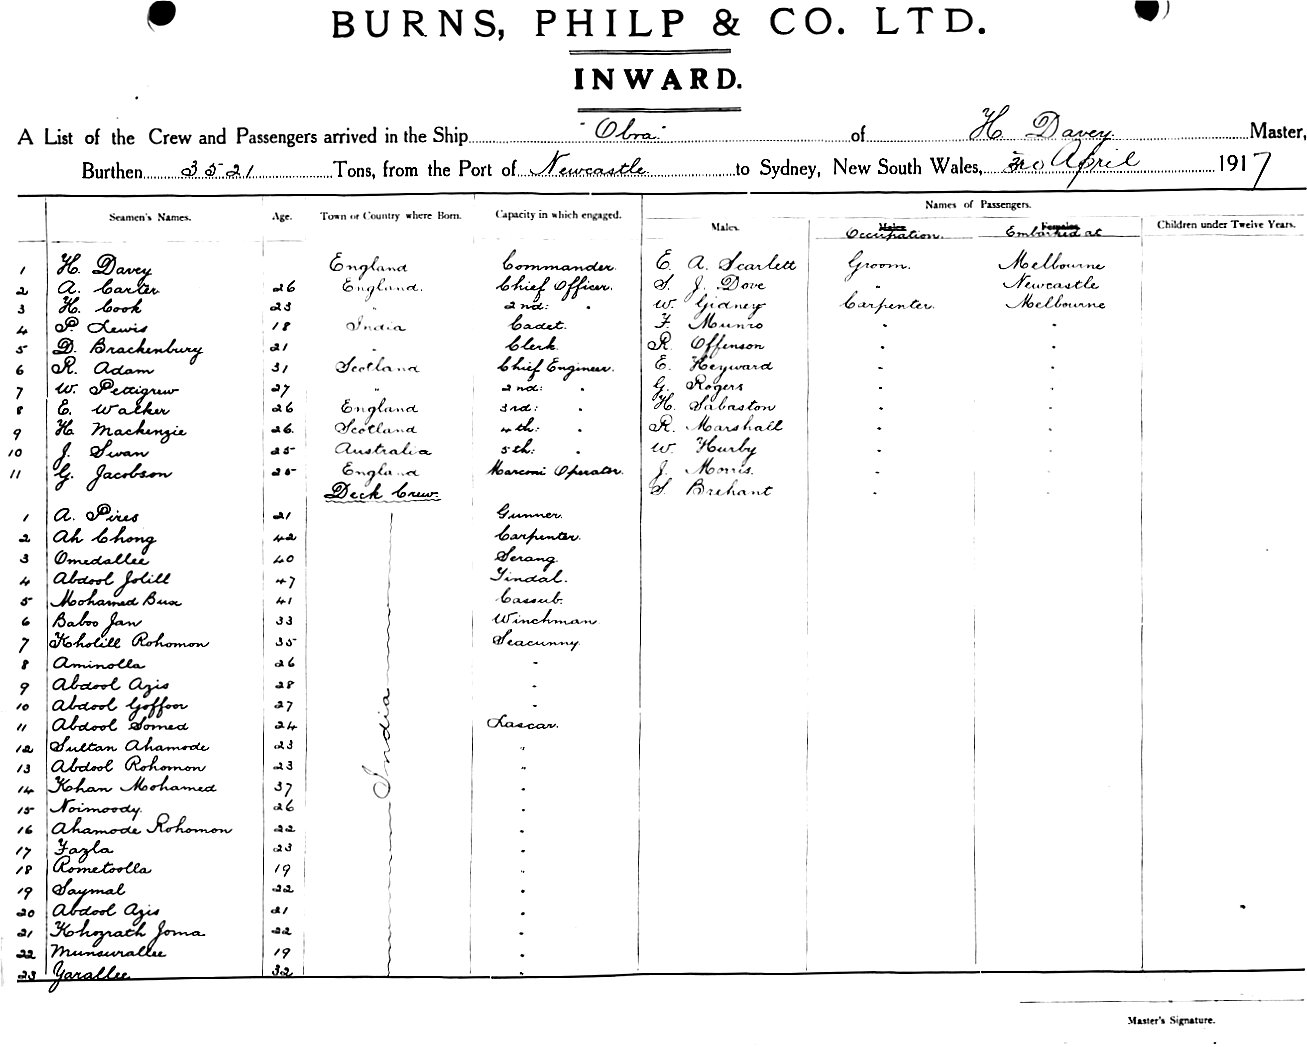 BURNS, PHILP & CO. LTD.
INWARD.
A List of the Crew and Passengers arrived in the Ship "Obra" of H. Davey Master,
Burthen 3521 Tons, from the Port of Newcastle to Sydney, New South Wales, April 1917
Names of Passengers.
Seamen's Names. Age. Town or Country where Born. Capacity in which engaged. Males. Males Occupation. Females Embarked at Children under Twelve Years.
1 H. Davey England Commander. E. A. Scarlett Groom. Melbourne
2 A. Carter 26 England. Chief Officer. S. J. Dove " Newcastle
3 H. Cook 23 " 2nd: " W. Gidney Carpenter. Melbourne
4 P. Lewis 18 India Cadet. F. Munro " "
5 D. Brackenbury 21 " Clerk. R. Offenson " "
6 R. Adam 31 Scotland Chief Engineer. E. Heyward " "
7 W. Pettigrew 27 " 2nd: " G. Rogers " "
8 E. Walker 26 England 3rd: " H. Sabaston " "
9 H. Mackenzie 26 Scotland 4th: " R. Marshall " "
10 J. Swan 25 Australia 5th: " W. Hurby " "
11 G. Jacobson 25 England Marconi Operator. J. Morris. " "
Deck Crew. S. Brehant " "
1 A. Pires 21 Gunner.
2 Ah Chong 42 Carpenter.
3 Omedallee 40 Serang.
4 Abdool Jolill 47 Tindal.
5 Mohamed Bux 41 Cassub.
6 Baboo Jan 33 Winchman
7 Kholill Rohomon 35 Seacunny
8 Aminolla 26 "
9 Abdool Azis 28 "
10 Abdool Goffoor 27 "
11 Abdool Somed 24 Lascar.
12 Sultan Ahamode 23 "
13 Abdool Rohomon 23 "
India
14 Khan Mohamed 37 "
15 Noimoody. 26 "
16 Ahamode Rohomon 22 "
17 Fazla 23 "
18 Rometoolla 19 "
19 Saymal 22 "
20 Abdool Azis 21 "
21 Khozrath Joma 22 "
22 Munsurallee 19 "
23 Yarallee 32 "
Master's Signature.